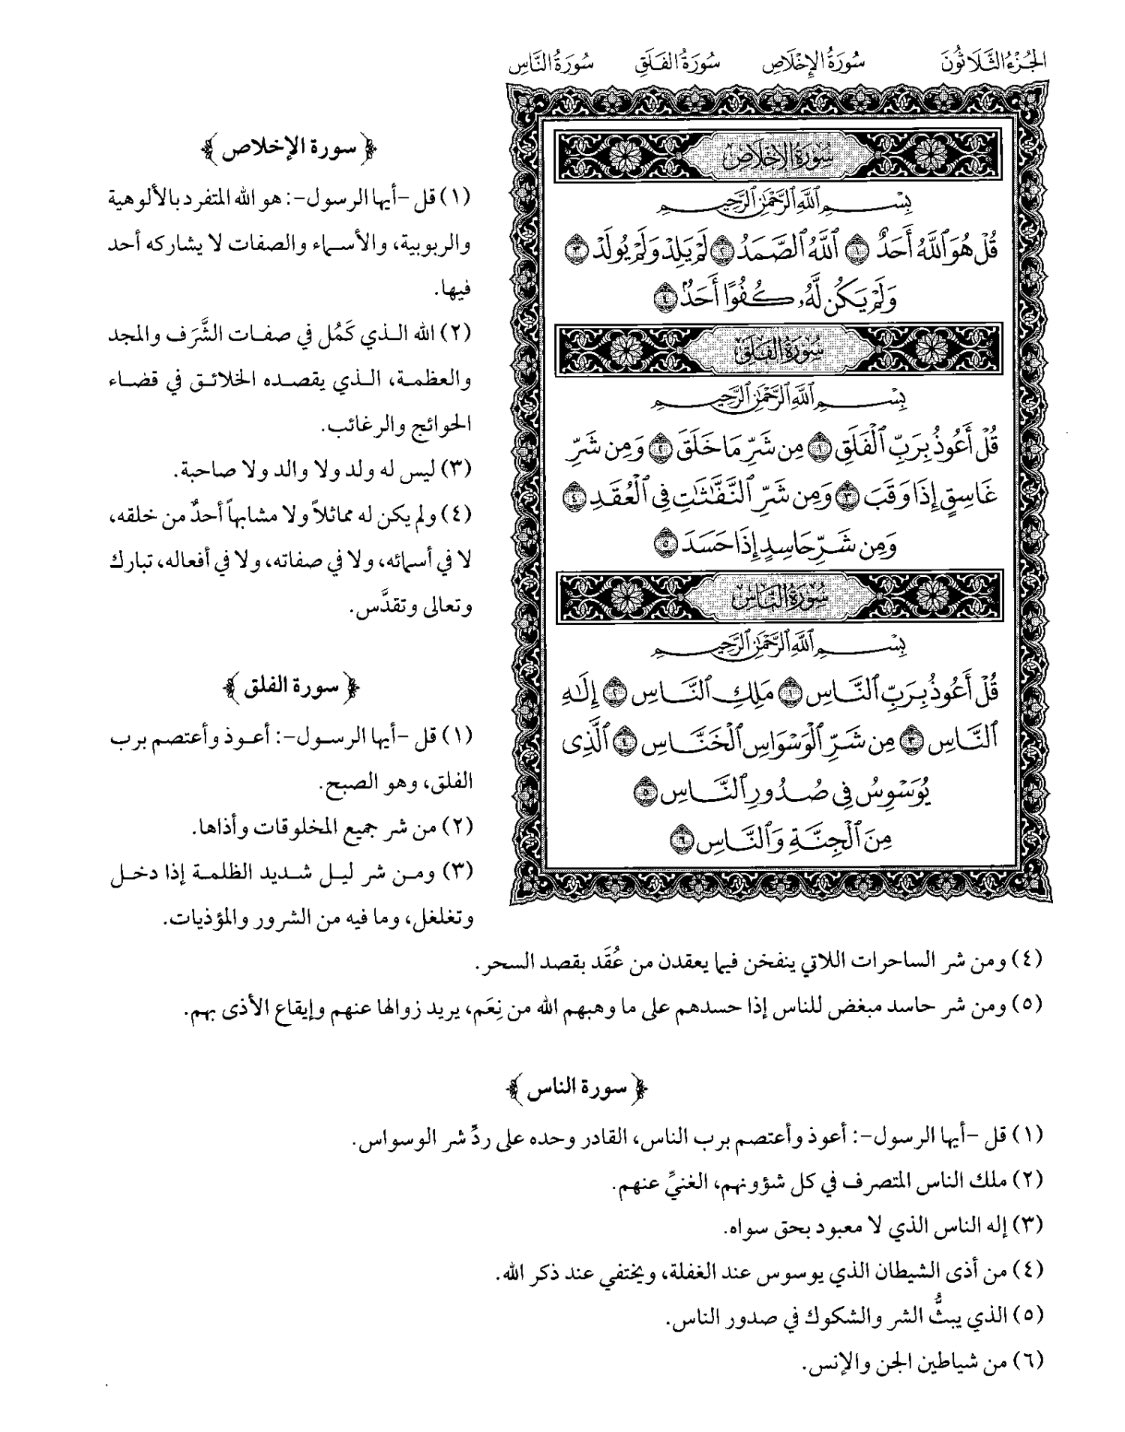 الجُزْءُ الثَّلَاثُونَ سُورَةُ الإِخْلَاصِ سُورَةُ الفَلَقِ سُورَةُ النَّاسِ
سُورَةُ الإِخْلَاصِ
بِسْمِ ٱللَّهِ ٱلرَّحْمَٰنِ ٱلرَّحِيمِ
قُلْ هُوَ ٱللَّهُ أَحَدٌ ١ ٱللَّهُ ٱلصَّمَدُ ٢ لَمْ يَلِدْ وَلَمْ يُولَدْ ٣
وَلَمْ يَكُن لَّهُۥ كُفُوًا أَحَدٌۢ ٤
سُورَةُ الفَلَقِ
بِسْمِ ٱللَّهِ ٱلرَّحْمَٰنِ ٱلرَّحِيمِ
قُلْ أَعُوذُ بِرَبِّ ٱلْفَلَقِ ١ مِن شَرِّ مَا خَلَقَ ٢ وَمِن شَرِّ
غَاسِقٍ إِذَا وَقَبَ ٣ وَمِن شَرِّ ٱلنَّفَّٰثَٰتِ فِى ٱلْعُقَدِ ٤
وَمِن شَرِّ حَاسِدٍ إِذَا حَسَدَ ٥
سُورَةُ النَّاسِ
بِسْمِ ٱللَّهِ ٱلرَّحْمَٰنِ ٱلرَّحِيمِ
قُلْ أَعُوذُ بِرَبِّ ٱلنَّاسِ ١ مَلِكِ ٱلنَّاسِ ٢ إِلَٰهِ
ٱلنَّاسِ ٣ مِن شَرِّ ٱلْوَسْوَاسِ ٱلْخَنَّاسِ ٤ ٱلَّذِى
يُوَسْوِسُ فِى صُدُورِ ٱلنَّاسِ ٥
مِنَ ٱلْجِنَّةِ وَٱلنَّاسِ ٦
﴿ سورة الإخلاص ﴾
(١) قل -أيها الرسول-: هو الله المتفرد بالألوهية
والربوبية، والأسماء والصفات لا يشاركه أحد
فيها.
(٢) الله الذي كَمُل في صفات الشَّرَف والمجد
والعظمة، الذي يقصده الخلائق في قضاء
الحوائج والرغائب.
(٣) ليس له ولد ولا والد ولا صاحبة.
(٤) ولم يكن له مماثلاً ولا مشابهاً أحدٌ من خلقه،
لا في أسمائه، ولا في صفاته، ولا في أفعاله، تبارك
وتعالى وتقدَّس.
﴿ سورة الفلق ﴾
(١) قل -أيها الرسول-: أعوذ وأعتصم برب
الفلق، وهو الصبح.
(٢) من شر جميع المخلوقات وأذاها.
(٣) ومن شر ليل شديد الظلمة إذا دخل
وتغلغل، وما فيه من الشرور والمؤذيات.
(٤) ومن شر الساحرات اللاتي ينفخن فيما يعقدن من عُقَد بقصد السحر.
(٥) ومن شر حاسد مبغض للناس إذا حسدهم على ما وهبهم الله من نِعَم، يريد زوالها عنهم وإيقاع الأذى بهم.
﴿ سورة الناس ﴾
(١) قل -أيها الرسول-: أعوذ وأعتصم برب الناس، القادر وحده على ردِّ شر الوسواس.
(٢) ملك الناس المتصرف في كل شؤونهم، الغنيِّ عنهم.
(٣) إله الناس الذي لا معبود بحق سواه.
(٤) من أذى الشيطان الذي يوسوس عند الغفلة، ويختفي عند ذكر الله.
(٥) الذي يبثُّ الشر والشكوك في صدور الناس.
(٦) من شياطين الجن والإنس.